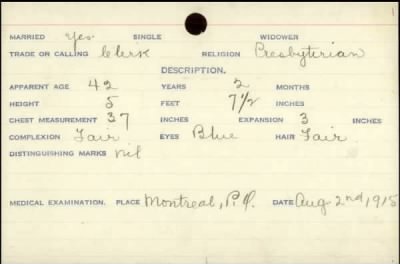 MARRIED Yes SINGLE WIDOWER
TRADE OR CALLING Clerk RELIGION Presbyterian
DESCRIPTION.
APPARENT AGE 42 YEARS 2 MONTHS
HEIGHT 5 FEET 7 1/2 INCHES
CHEST MEASUREMENT 37 INCHES EXPANSION 3 INCHES
COMPLEXION Fair EYES Blue HAIR Fair
DISTINGUISHING MARKS nil
MEDICAL EXAMINATION. PLACE Montreal, P.Q. DATE Aug 2nd, 1915